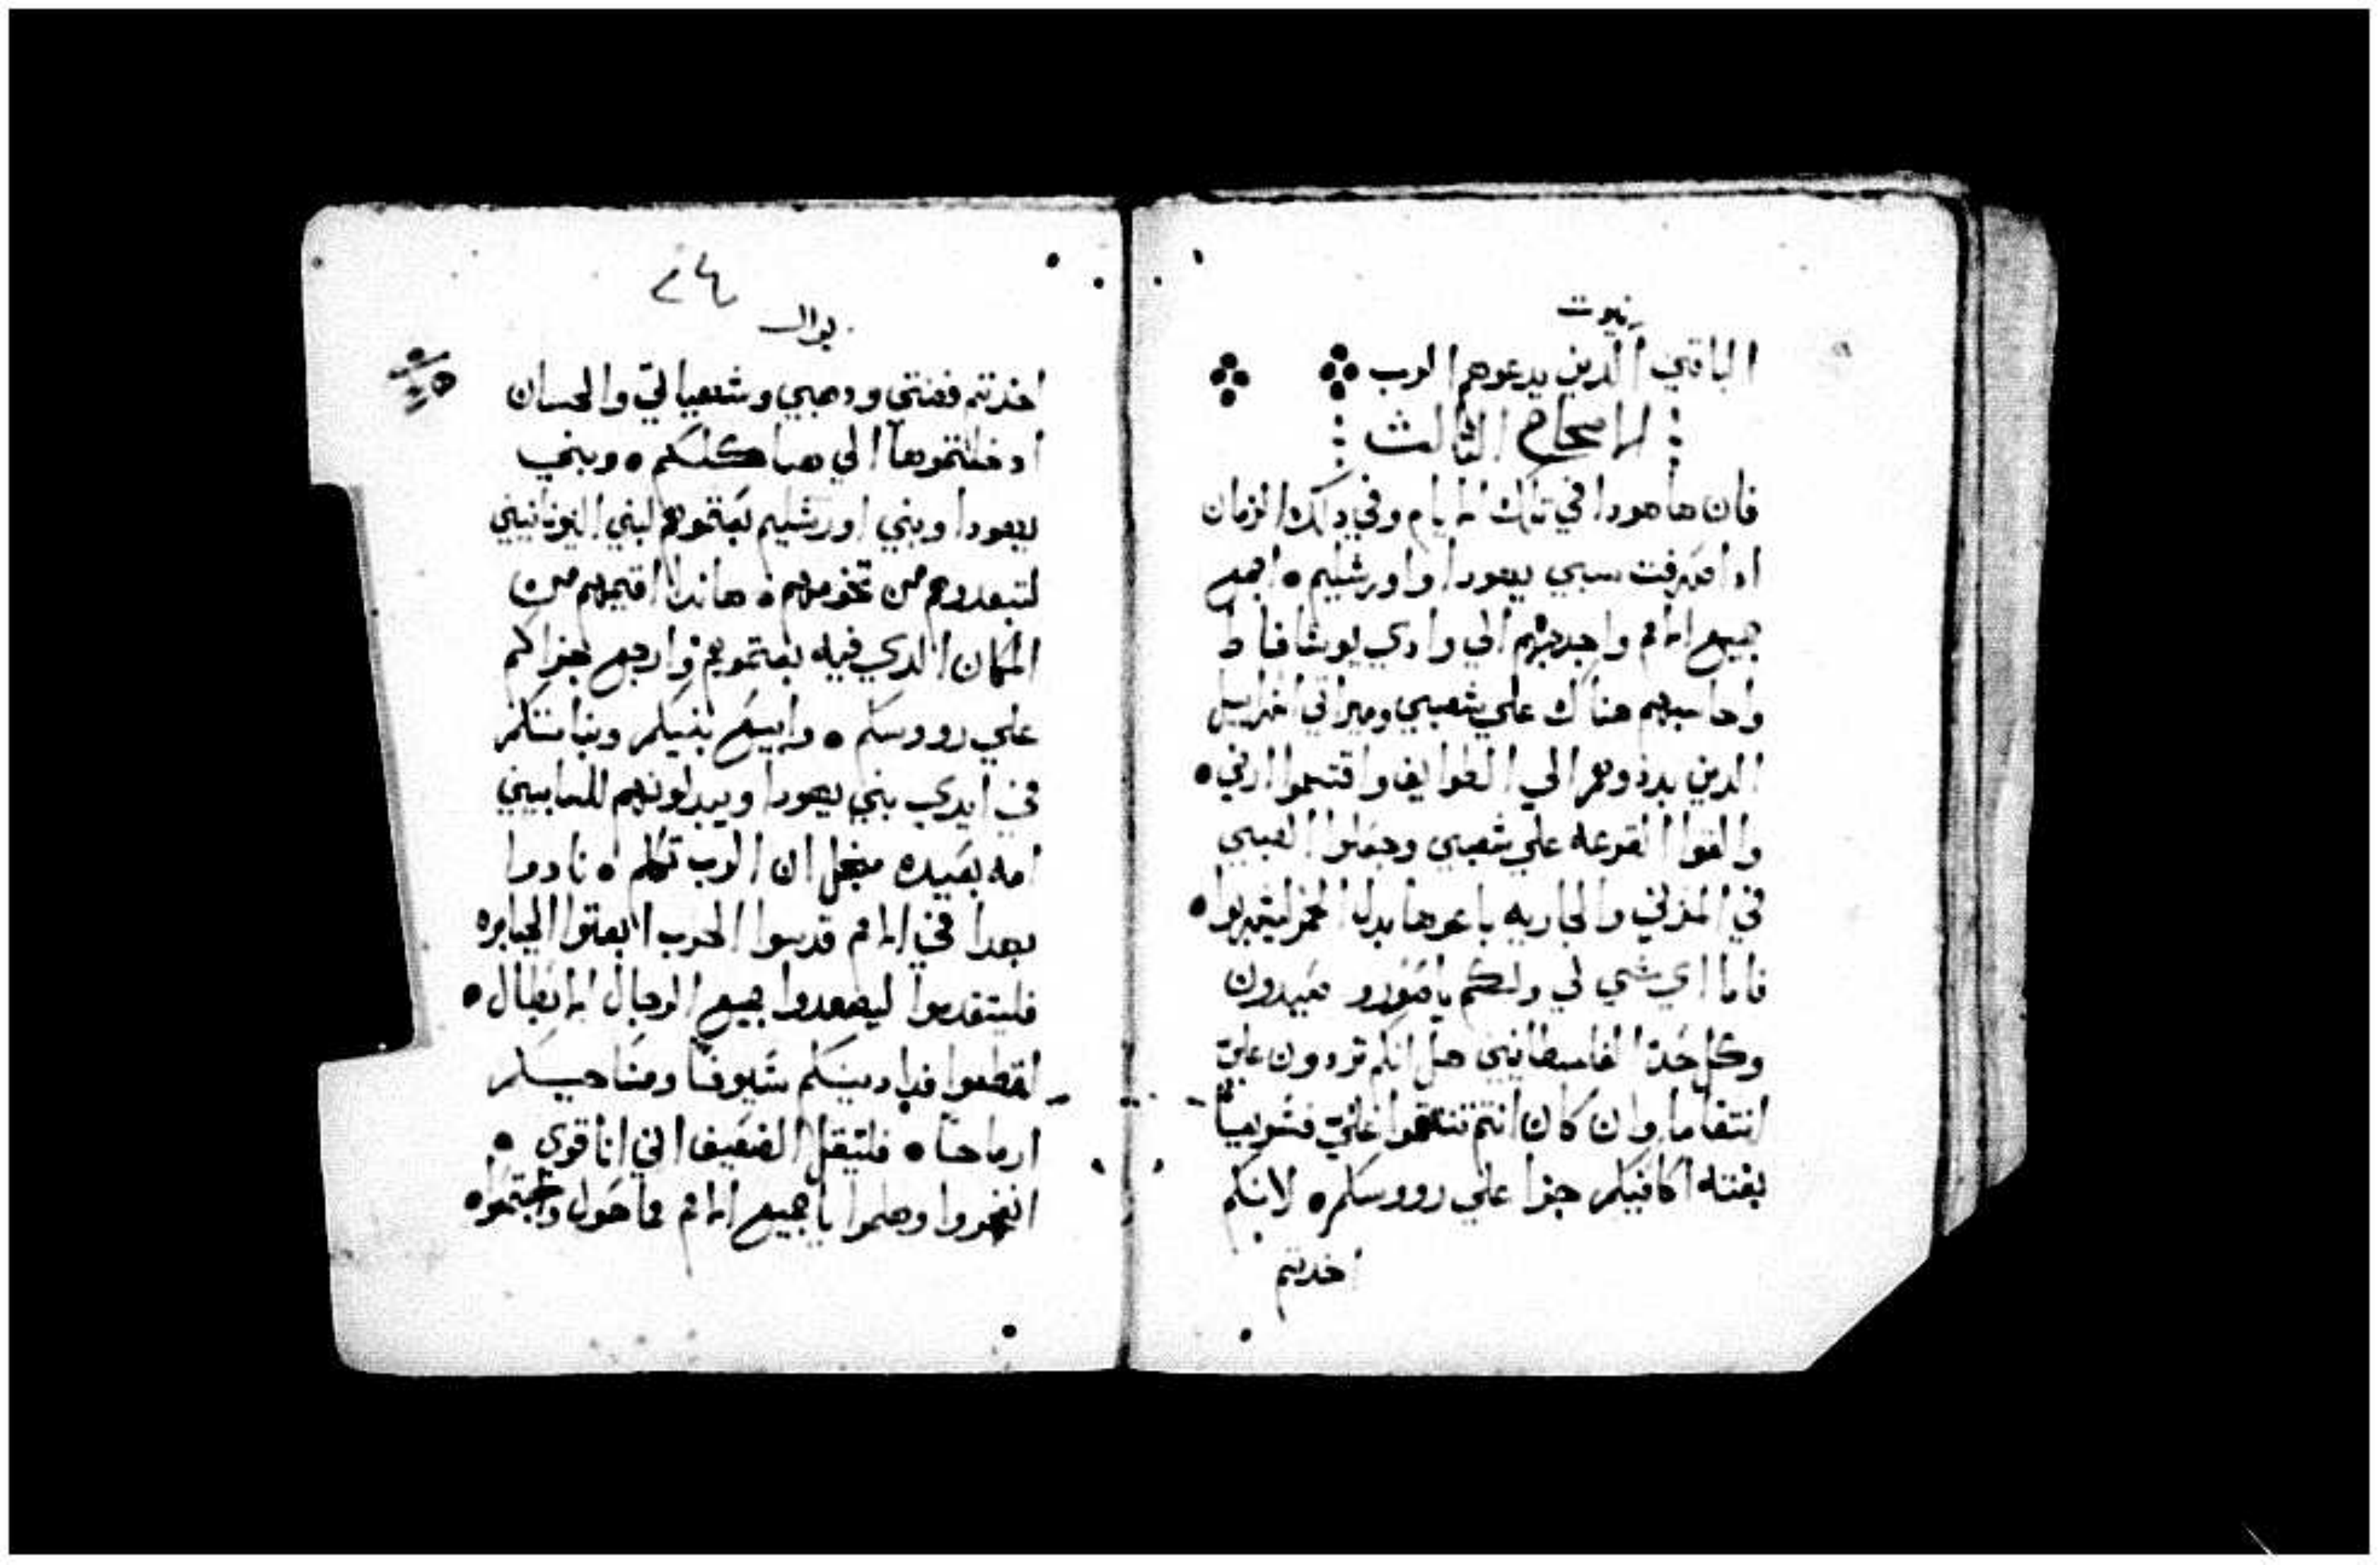 نبوت
الباقي الدين يدعوهم الرب
الاصحاح الثالث
فان هاهودا في تلك الايام وفي دلك الزمان
ادا صرفت سبي يهودا واورشليم ٥ اجمع
جميع الامم واحدرهم الي وادي يوشافاط
واحاسبهم هناك علي شعبي وميراتي اسراييل
الدين بددوهم الي الطوايف واقتسموا ارضي ٥
والقوا القرعه علي شعبي وجعلوا الصبي
في المزني والجاريه باعوها بدل الخمر ليشربوا ٥
فاما اي شي لي ولكم يا صور و صيدون
وكل حد الفلسطانيين هل انكم تردون علي
انتقاما وان كان انتم تنتقموا علي فسريعا
بغتة اكافيكم جزا علي رووسكم ٥ لانكم
اخدتم
٢٤
يوال
اخدتم فضتي ودهبي وشهياتي والحسان
ادخلتموها الي هياكلكم ٥ وبني
يهودا وبني اورشليم بعتموهم لبني اليونانيين
لتبعدوهم من تخومهم ٥ هاندا اقيمهم من
المكان الدي فيه بعتموهم وارجع جزاكم
علي رووسكم ٥ وابيع بنيكم وبناتكم
في ايدي بني يهودا ويبدلونهم للسابيين
امه بعيده منجل ان الرب تكلم ٥ نادوا
بهدا في الامم قدسوا الحرب ابعتوا الجبابره
فليتقدموا ليصعدوا جميع الرجال الابطال ٥
اقطعوا فدادينكم سيوفا ومناجيلكم
ارماحا ٥ فليقل الضعيف اني انا قوي ٥
انفجروا وهلموا يا جميع الامم مما حول واجتمعوا ٥